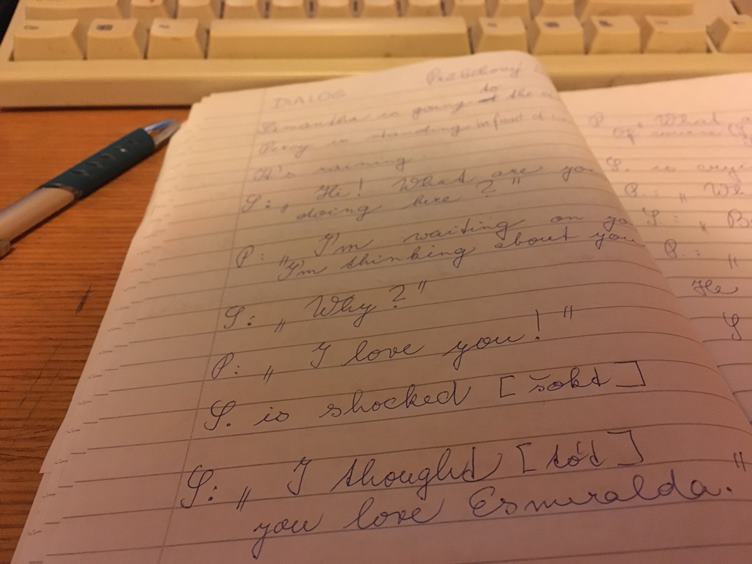 DIALOG
Samantha is going to the
Percy is standing in front of
It's raining
S: „ He! What are you
doing here?"
P: „ I'm waiting on yo
I'm thinking about you
S: „ Why?"
P: „ I love you!"
S. is shocked [šokt]
S: „ I thought [tót]
you love Esmeralda."
P: „ What
Of course
S. is
P: „ Wh
S: „ B
P.: „
He
S